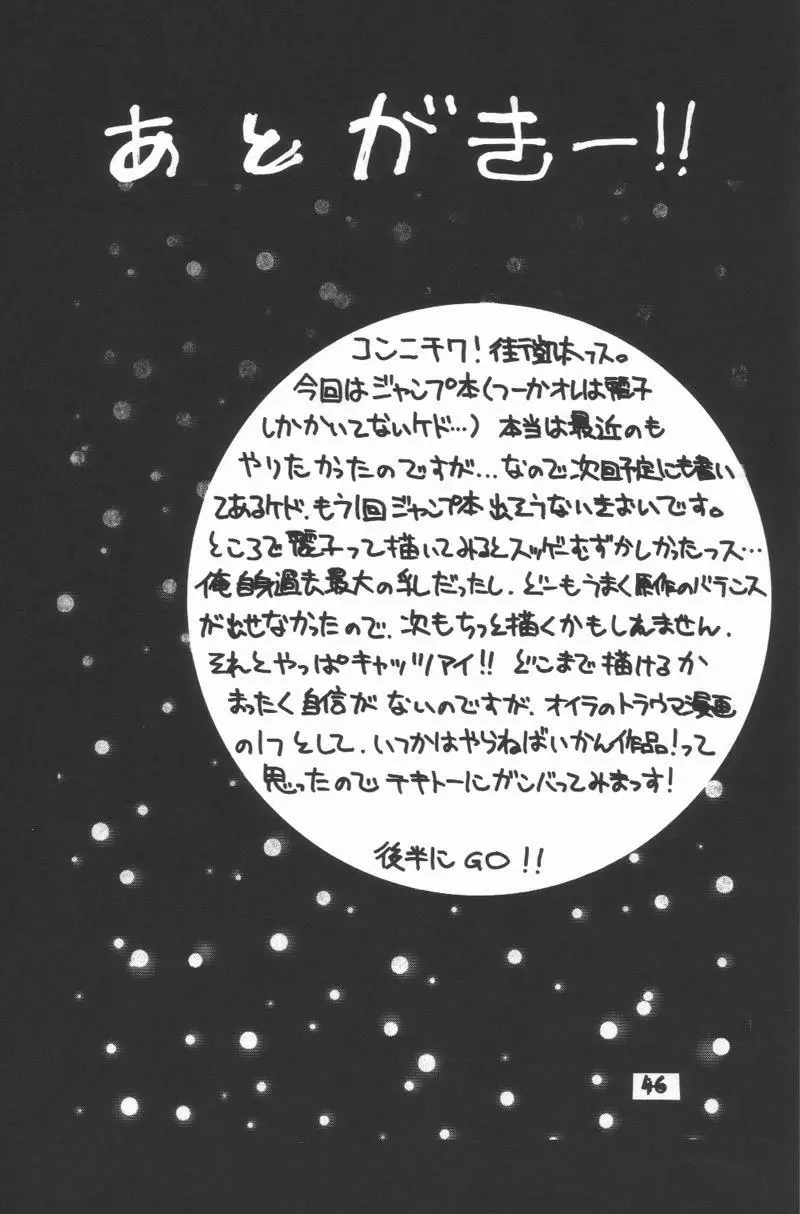 あとがきー!!
コンニチワ!街道はっス。
今回はジャンプ本(つーかオレは麗子
しかかいてないケド…)本当は最近のも
やりたかったのですが…なので次回予定にも書い
てあるケド、もう1回ジャンプ本出そうないきおいです。
ところで麗子って描いてみるとスッゲーむずかしかったっス…
俺自身過去最大の乳だったし、どーもうまく原作のバランス
が出せなかったので、次もちっと描くかもしれません、
それとやっぱキャッツアイ!!どこまで描けるか
まったく自信がないのですが、オイラのトラウマ漫画
の1つとして、いつかはやらねばいかん作品!って
思ったのでテキトーにガンバってみまっす!
後半にGO!!
46